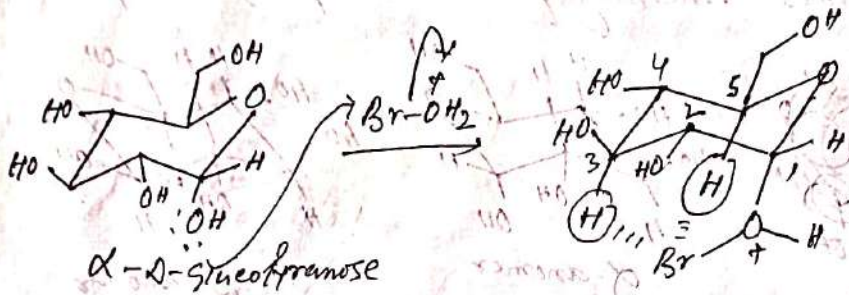 OH
O
HO
HO
OH
H
:OH
α-D-glucopyranose
Br-OH2
+
OH
O
HO
4
5
HO
2
3
HO
H
H
1
H
Br
O
+
H